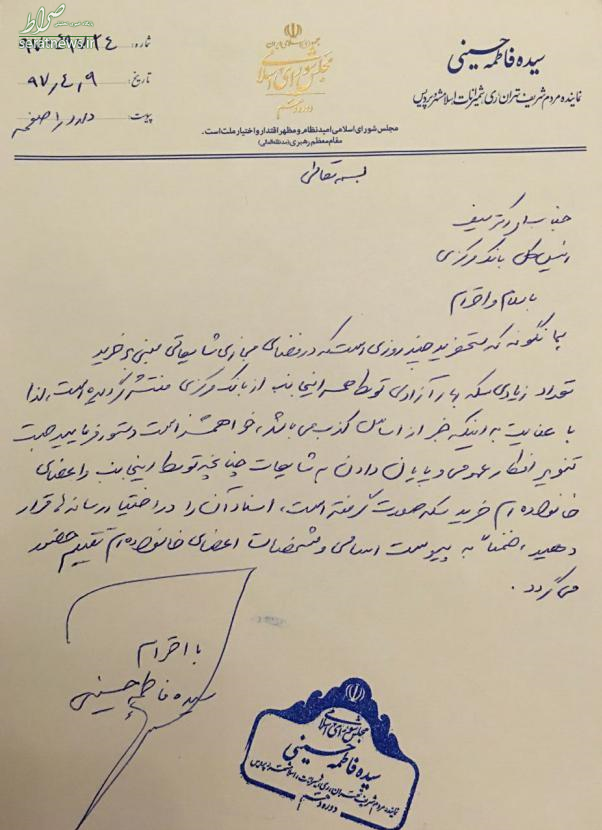 صراط
seratnews.ir
جمهوری اسلامی ایران
مجلس شورای اسلامی
دوره دهم
سیده فاطمه حسینی
نماینده مردم شریف تهران، ری، شمیرانات، اسلامشهر و پردیس
شماره:
تاریخ: ۹۷٫۴٫۹
پیوست: دارد را صفحه
مجلس شورای اسلامی امید نظام و مظهر اقتدار و اختیار ملت است.
مقام معظم رهبری (مدظله العالی)
بسمه تعالی
جناب آقای دکتر سیف
رئیس کل بانک مرکزی
با سلام و احترام
همانگونه که مستحضرید چند روزی است که در فضای مجازی شایعاتی مبنی بر خرید
تعداد زیادی سکه بهار آزادی توسط همسر اینجانب از بانک مرکزی منتشر گردیده است، لذا
با عنایت به اینکه خبر از اساس کذب می باشد، خواهشمند است دستور فرمایید جهت
تنویر افکار عمومی و پایان دادن به شایعات چنانچه توسط اینجانب و اعضای
خانواده ام خرید سکه صورت گرفته است، اسناد آن را در اختیار رسانه ها قرار
دهید، ضمناً به پیوست اسامی و مشخصات اعضای خانواده ام تقدیم حضور
می گردد.
با احترام
سیده فاطمه حسینی
مجلس شورای اسلامی
سیده فاطمه حسینی
نماینده مردم شریف تهران، ری، شمیرانات، اسلامشهر و پردیس
دوره دهم